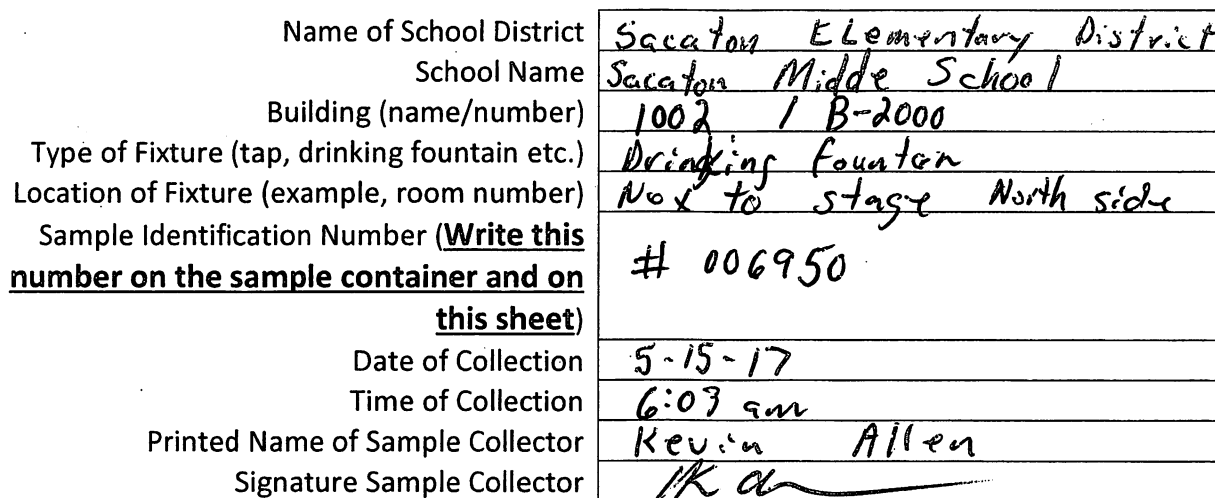 Name of School District Sacaton Elementary District
School Name Sacaton Midde School
Building (name/number) 1002 / B-2000
Type of Fixture (tap, drinking fountain etc.) Drinking fountan
Location of Fixture (example, room number) Nex to stage North side
Sample Identification Number (Write this
number on the sample container and on
this sheet) # 006950
Date of Collection 5-15-17
Time of Collection 6:03 am
Printed Name of Sample Collector Kevin Allen
Signature Sample Collector